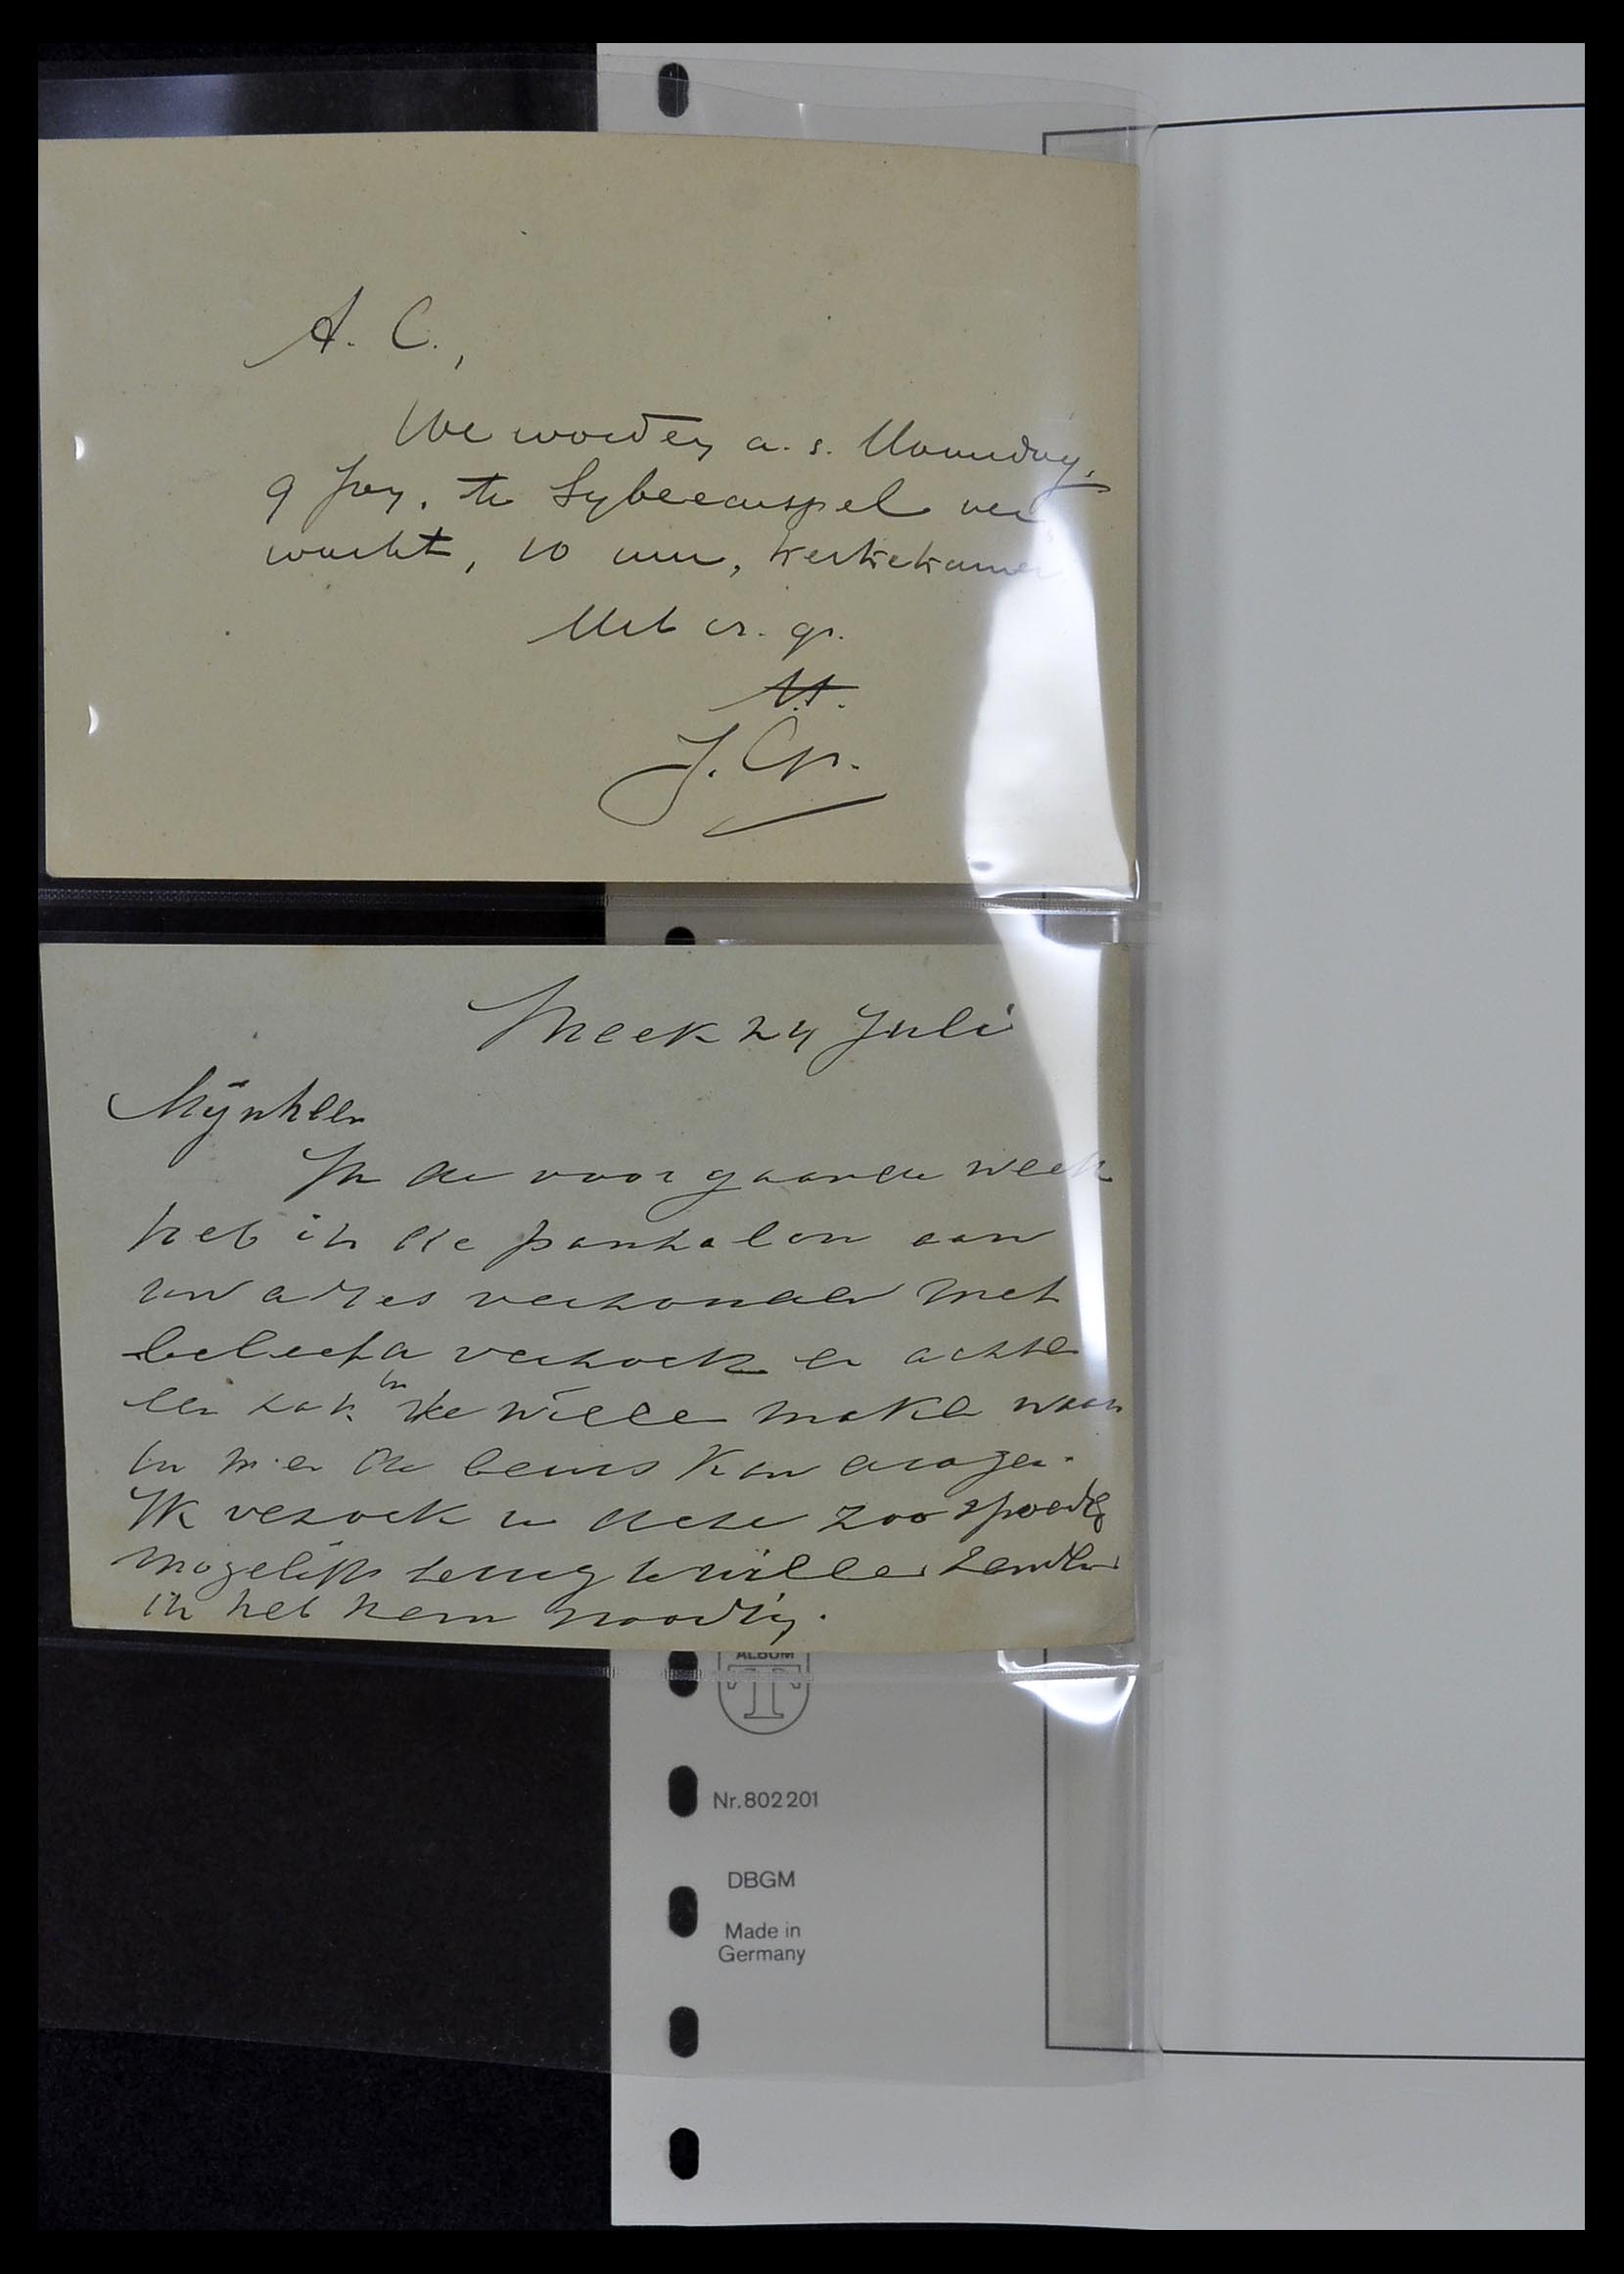 A. C.,
We worden a.s. Maandag,
9 Jan. te Sybecarspel ver
wacht, 10 uur, kerkekamer
Met vr. gr.
J. Gr.
Sneek 24 Juli
Mijnheer
In de voorgaande week
heb ik de pantalon aan
uw adres verzonden met
beleefd verzoek er achter
een zak in te wille make waar
in m'er de beurs kan dragen.
Ik vezoek u deze zoo spoedig
mogelijk terug te wille zenden
ik heb hem noodig.
ALBUM
Nr. 802 201
DBGM
Made in
Germany